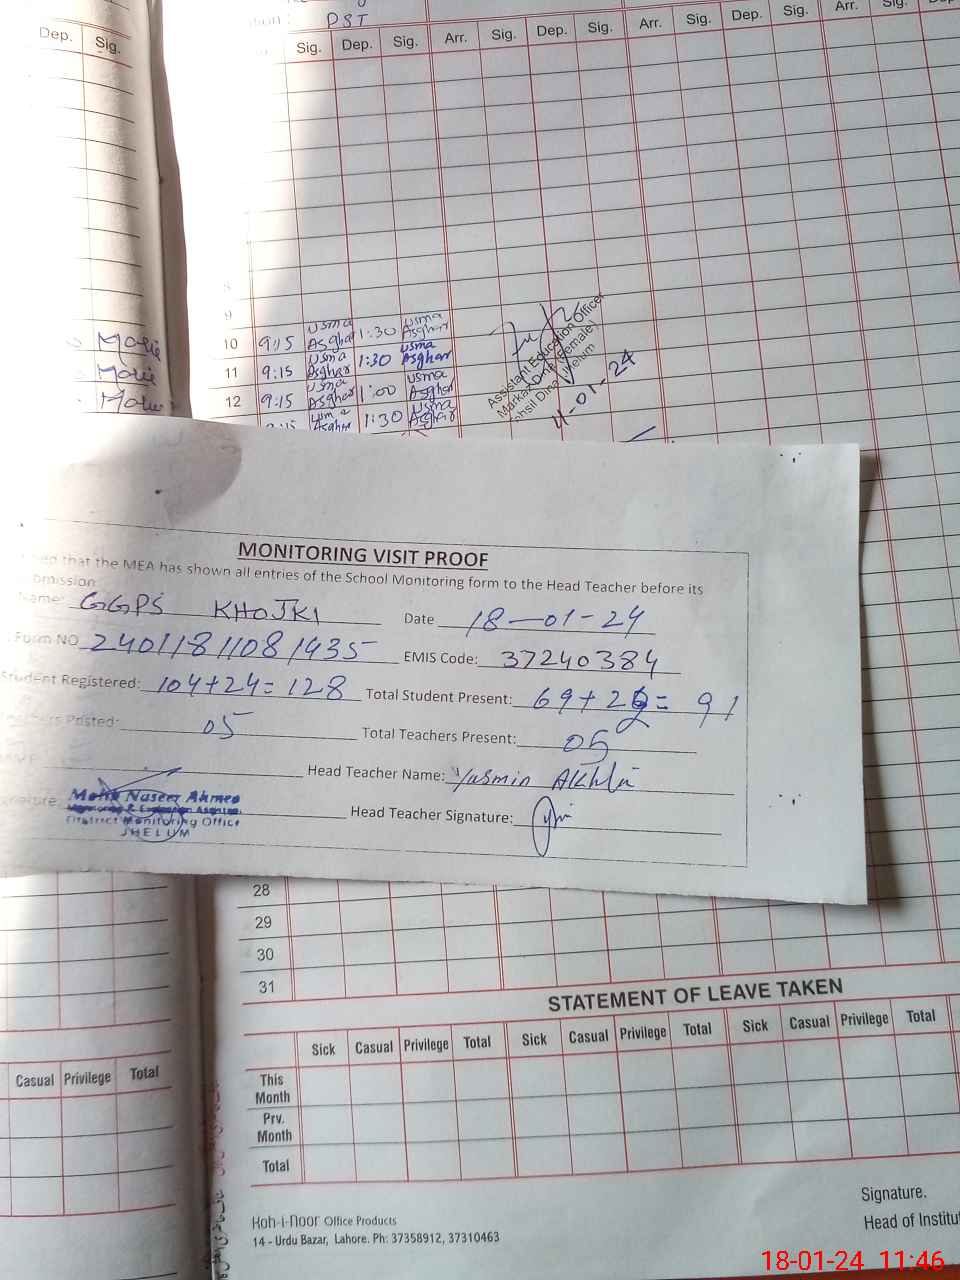 PST
Dep. Sig.
Sig. Dep. Sig. Arr. Sig. Dep. Sig. Arr. Sig. Dep. Sig. Arr. Sig.
8
9
10 9:15 usma Asghar 1:30 usma Asghar
11 9:15 usma Asghar 1:30 usma Asghar
12 9:15 usma Asghar 1:00 usma Asghar
Asghar 1:30 Asghar
Assistant Education Officer
Markaz Dina (Female)
Tehsil Dina Jhelum
11-01-24
MONITORING VISIT PROOF
that the MEA has shown all entries of the School Monitoring form to the Head Teacher before its
Name: GGPS KHOJKI Date 18-01-24
Form NO 24011811081435 EMIS Code: 37240384
Student Registered: 104+24=128 Total Student Present: 69+22= 91
Teachers Posted: 05 Total Teachers Present: 05
Head Teacher Name: Yasmin Akhtar
Head Teacher Signature:
Naseer Ahmed
District Monitoring Office
JHELUM
28
29
30
31
STATEMENT OF LEAVE TAKEN
Sick Casual Privilege Total Sick Casual Privilege Total Sick Casual Privilege Total
Casual Privilege Total
This Month
Prv. Month
Total
Signature.
Head of Institu
Koh-i-Noor Office Products
14 - Urdu Bazar, Lahore. Ph: 37358912, 37310463
18-01-24 11:46